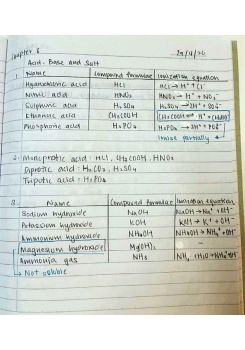 Chapter 6
Acid, Base and Salt
Name Compound formulae Ionization equation
Hydrochloric acid HCl HCl → H⁺ + Cl⁻
Nitric acid HNO₃ HNO₃ → H⁺ + NO₃⁻
Sulphuric acid H₂SO₄ H₂SO₄ → 2H⁺ + SO₄²⁻
Ethanoic acid CH₃COOH CH₃COOH ⇌ H⁺ +
Phosphoric acid H₃PO₄ H₃PO₄ → 3H⁺ + PO₄³⁻
Ionise partially
2. Monoprotic acid : HCl, CH₃COOH, HNO₃
Diprotic acid : H₂CO₃, H₂SO₄
Triprotic acid : H₃PO₄
3. Name Compound formulae Ionization equation
Sodium hydroxide NaOH NaOH → Na⁺ + OH⁻
Potassium hydroxide KOH KOH → K⁺ + OH⁻
Ammonium hydroxide NH₄OH NH₄OH → NH₄⁺ + OH⁻
Magnesium hydroxide Mg(OH)₂ –
Ammonia gas NH₃
→ Not soluble